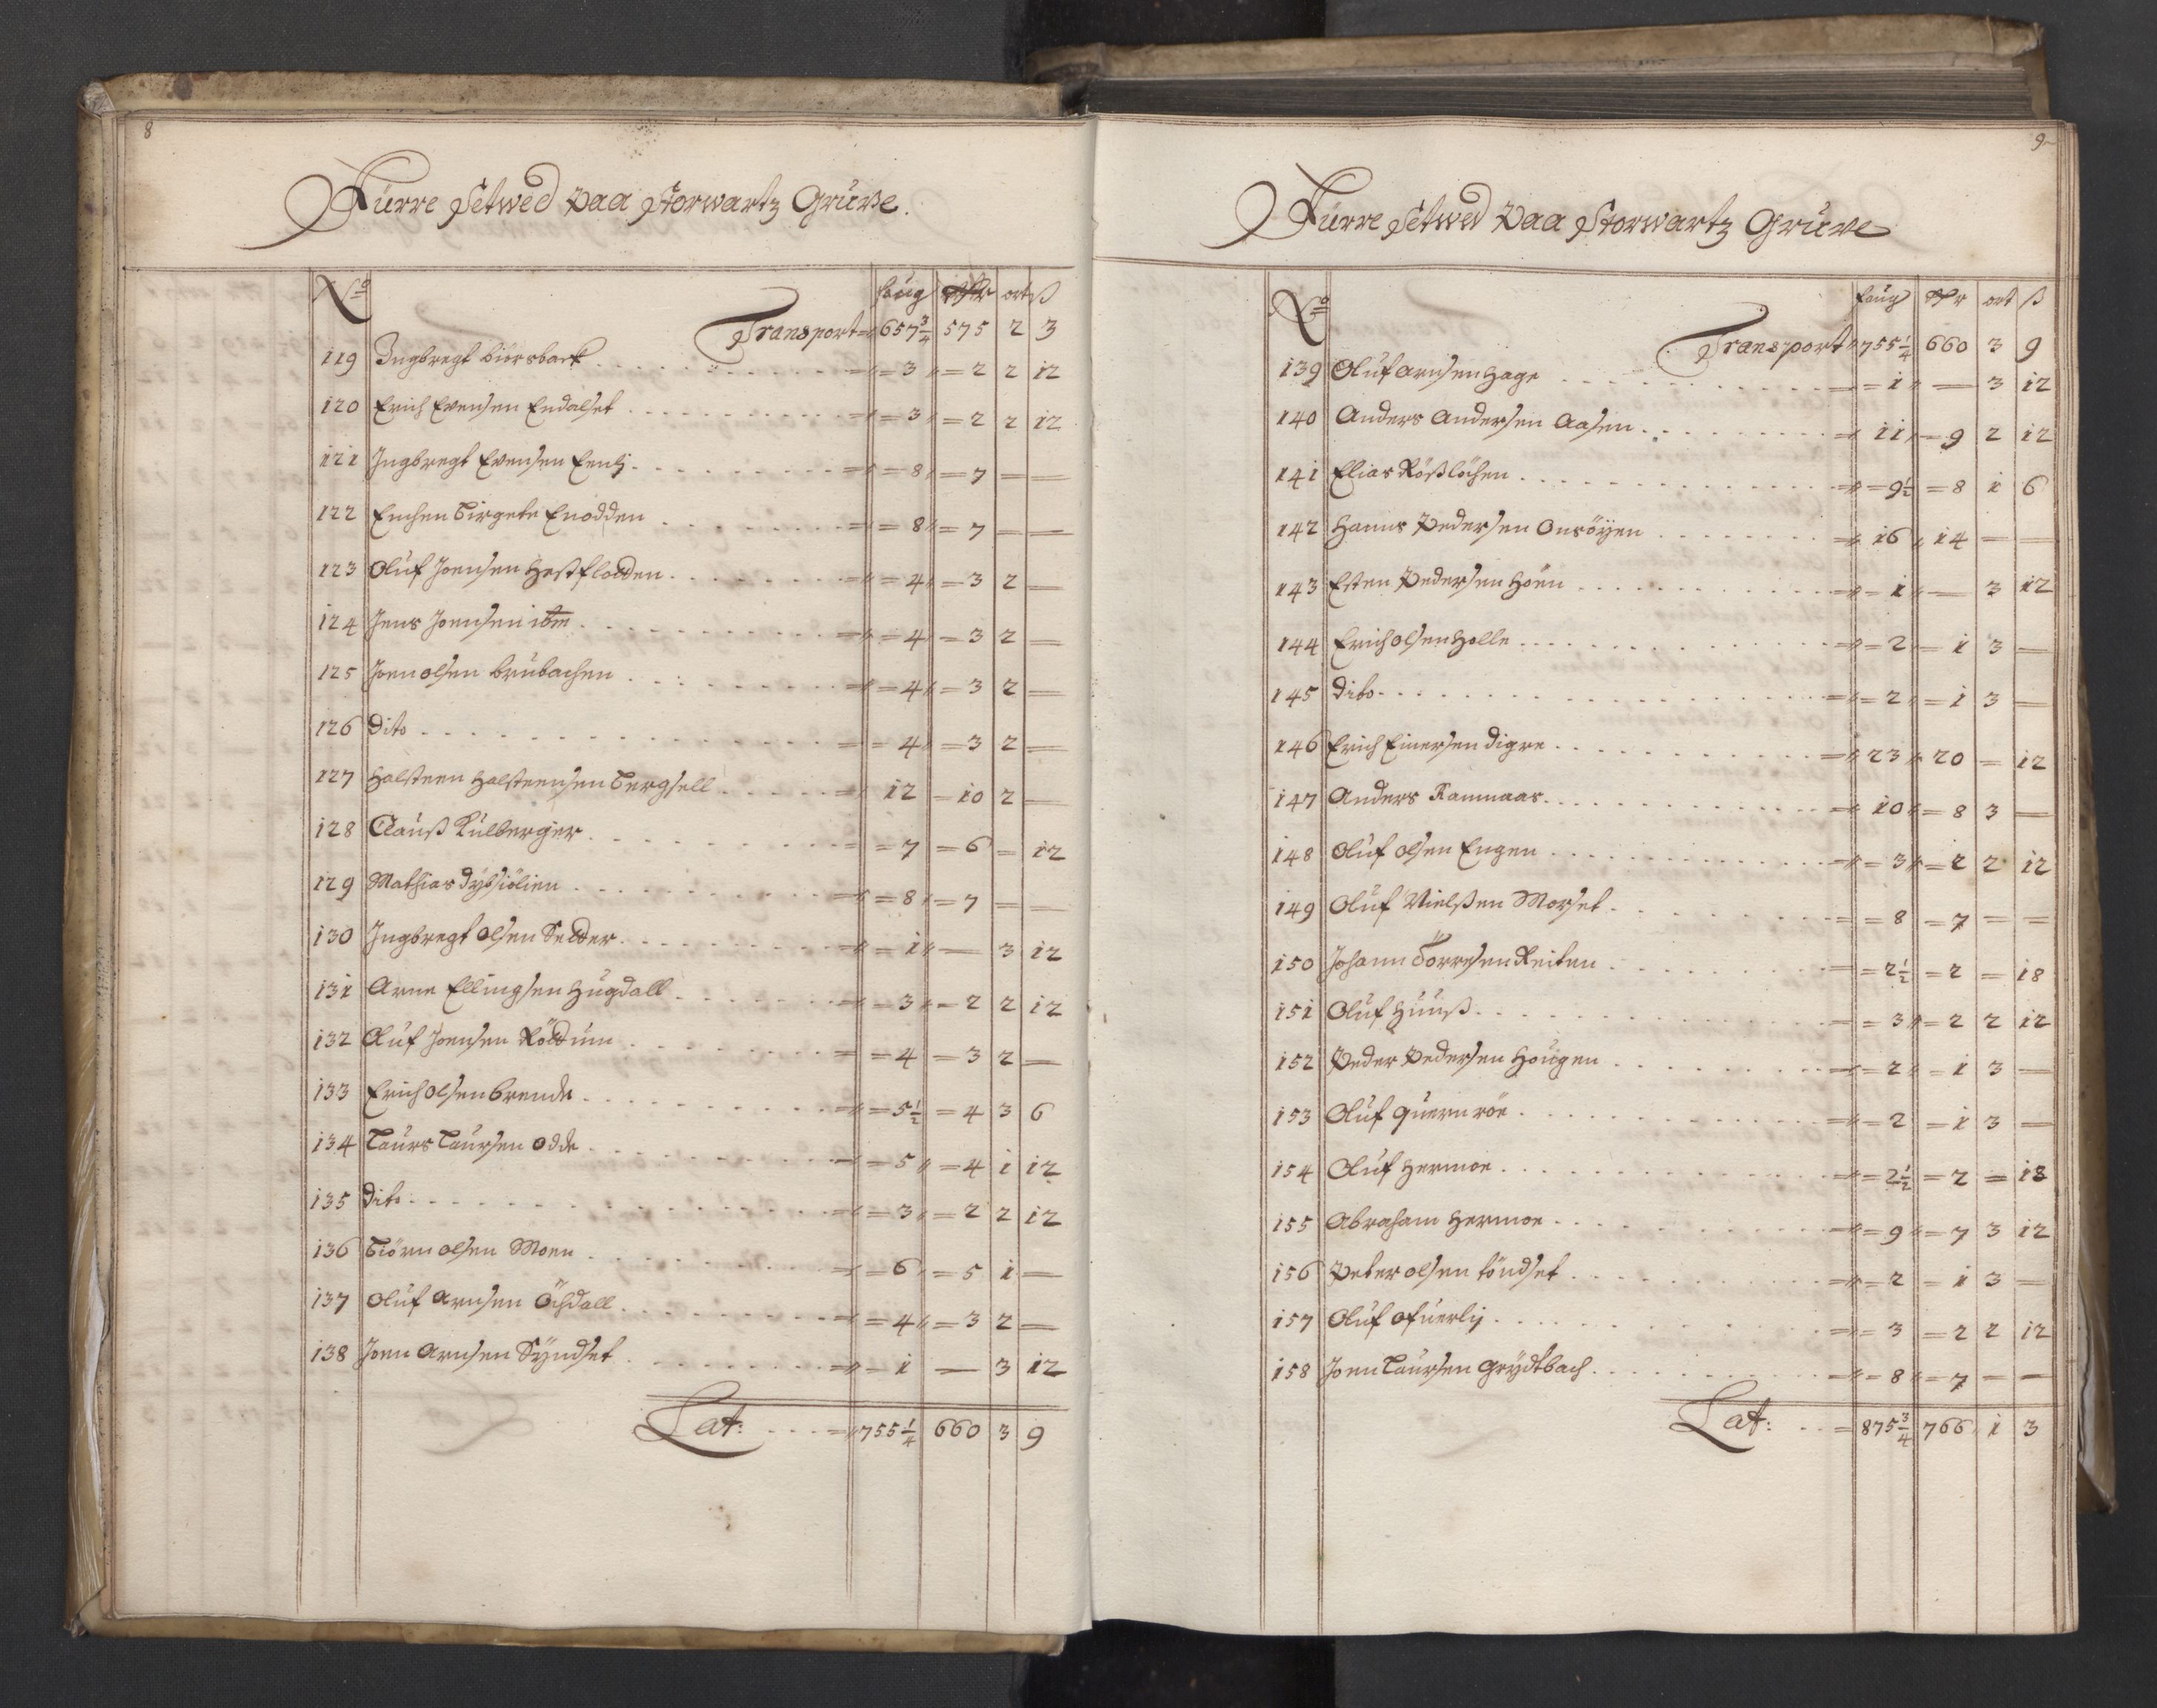 8
Fürre Setwed Paa Storwartz Gruve.
No faug Rdr ort ß
Transport 657 3/4 575 2 3
119 Ingbregt Biörsback = 3 = 2 2 12
120 Erich Evensen Endalset = 3 = 2 2 12
121 Ingbregt Evensen Eenlj = 8 = 7 — —
122 Enchen Birgete Enodden = 8 = 7 — —
123 Oluf Joensen Hestflodden = 4 = 3 2 —
124 Jens Joensen idm = 4 = 3 2 —
125 Joen Olsen Brubachen = 4 = 3 2 —
126 Dito = 4 = 3 2 —
127 Halsteen Halsteensen Bergsell 12 = 10 2 —
128 Clauß Külberger = 7 = 6 = 12
129 Mathias Dybsiölien = 8 = 7 — —
130 Ingbregt Olsen Selder = 1 — 3 12
131 Arne Ellingsen Hugdall = 3 = 2 2 12
132 Oluf Joensen Röldum = 4 = 3 2 —
133 Erich Olsen Brende = 5 1/2 = 4 3 6
134 Laurs Laursen Odde = 5 = 4 1 12
135 Dito = 3 = 2 2 12
136 Biörn Olsen Moen = 6 = 5 1 —
137 Oluf Arnsen Öchdall = 4 = 3 2 —
138 Joen Arnsen Syndset = 1 — 3 12
Lat: 755 1/4 660 3 9
9
Fürre Setwed Paa Storwartz Gruve
No faug Rdr ort ß
Transport 755 1/4 660 3 9
139 Oluf Arnsen Hage = 1 — 3 12
140 Anders Andersen Aasen 11 = 9 2 12
141 Elias Rößlöchen = 9 1/2 = 8 1 6
142 Hanns Pedersen Onsöyen 16 14 — —
143 Esten Pedersen Höen = 1 — 3 12
144 Erich Olsen Holle = 2 = 1 3 —
145 Dito = 2 = 1 3 —
146 Erich Einersen Digre 23 20 = 12
147 Anders Ramnaas 10 = 8 3 —
148 Oluf Olsen Engen = 3 = 2 2 12
149 Oluf Nielßen Morset = 8 = 7 = =
150 Johann Torresen Reiten = 2 1/2 = 2 = 18
151 Oluf Huuß = 3 = 2 2 12
152 Peder Pedersen Hougen = 2 = 1 3 —
153 Oluf Quernröe = 2 = 1 3 —
154 Oluf Hermoe = 2 1/2 = 2 = 18
155 Abraham Hermoe = 9 = 7 3 12
156 Peter Olsen Töndset = 2 = 1 3 —
157 Oluf Ofuerlij = 3 = 2 2 12
158 Joen Laursen Grydtbach = 8 = 7 — —
Lat: 875 3/4 766 1 3